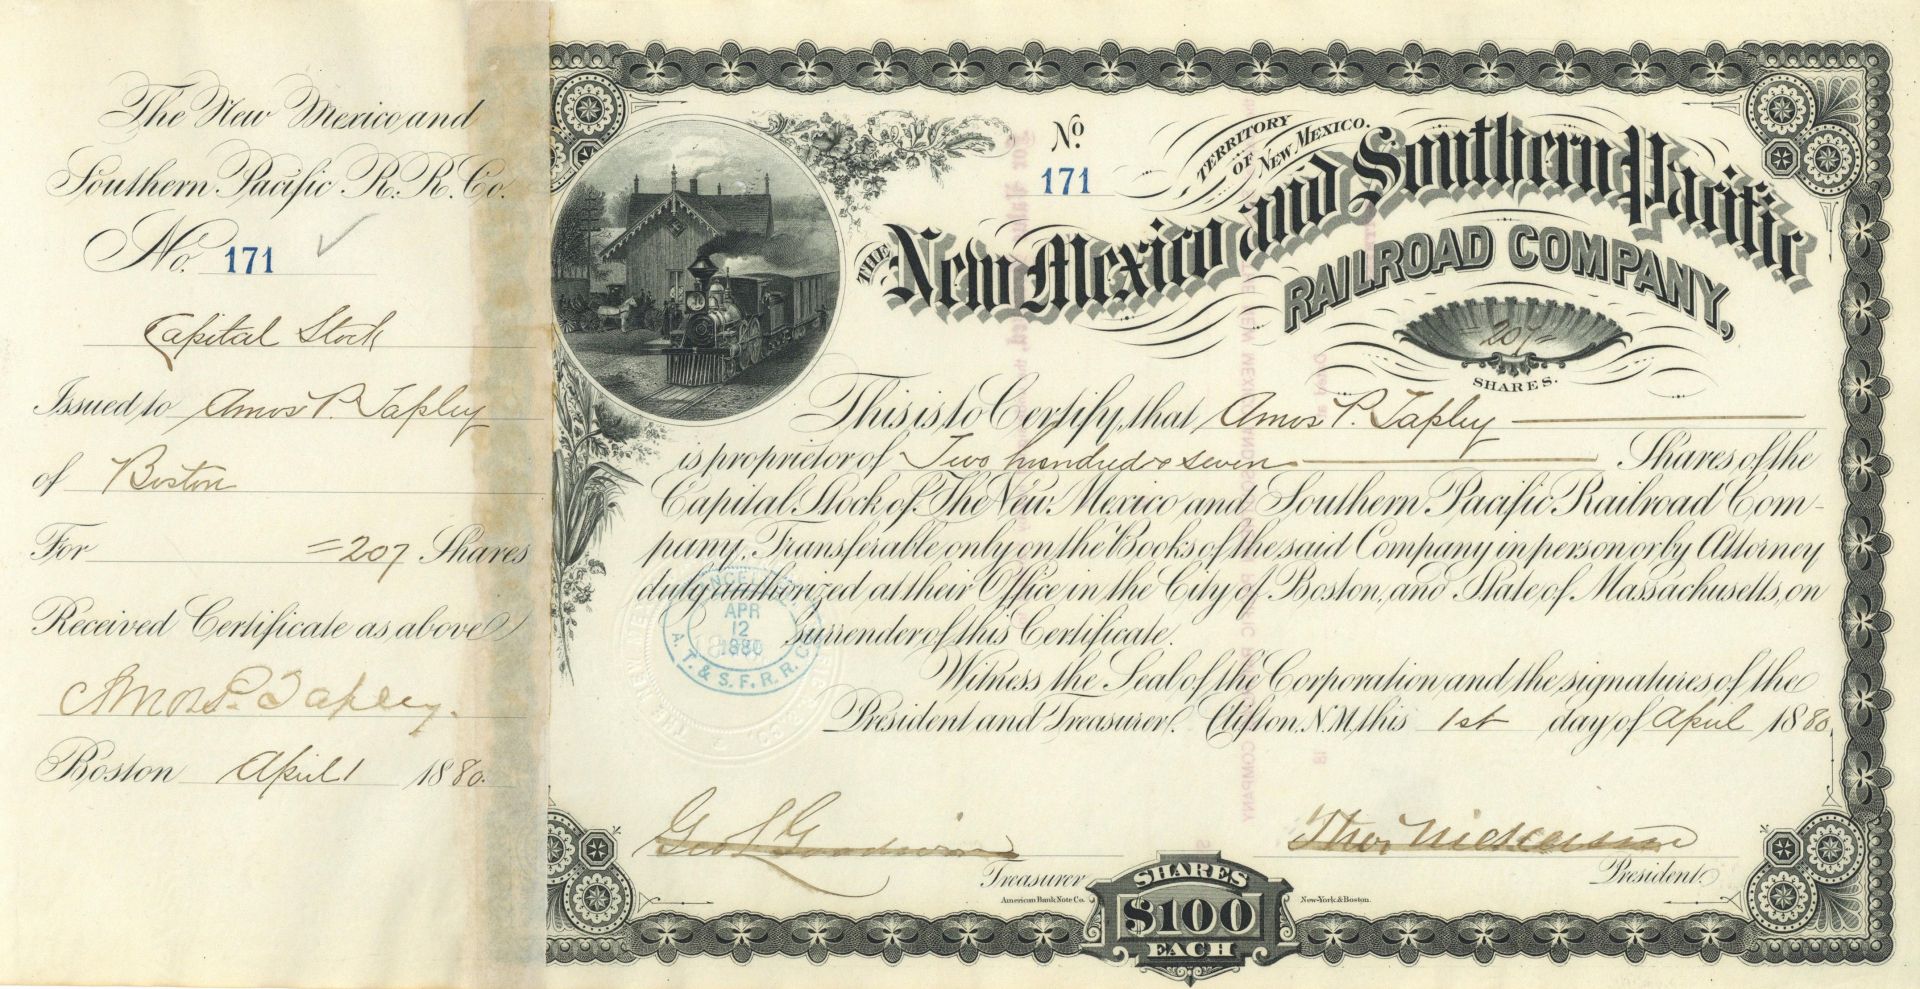 The New Mexico and
Southern Pacific R. R. Co.
No. 171
Capital Stock
Issued to Amos P. Tapley
of Boston
For =207 Shares
Received Certificate as above
Amos P. Tapley.
Boston April 1 1880.
No
171
TERRITORY
OF NEW MEXICO.
THE New Mexico and Southern Pacific
RAILROAD COMPANY,
=207=
SHARES.
This is to Certify, that Amos P. Tapley
is proprietor of Two hundred & seven Shares of the
Capital Stock of The New Mexico and Southern Pacific Railroad Com-
pany, Transferable only on the Books of the said Company in person or by Attorney
duly authorized at their Office in the City of Boston, and State of Massachusetts, on
surrender of this Certificate.
Witness the Seal of the Corporation and the signatures of the
President and Treasurer. Clifton N.M, this 1st day of April 1880
APR
12
1880
A. T. & S. F. R. R. Co.
Geo L Goodwin
Treasurer
Thos. Nickerson
President.
American Bank Note Co.
New-York & Boston.
SHARES
$100
EACH